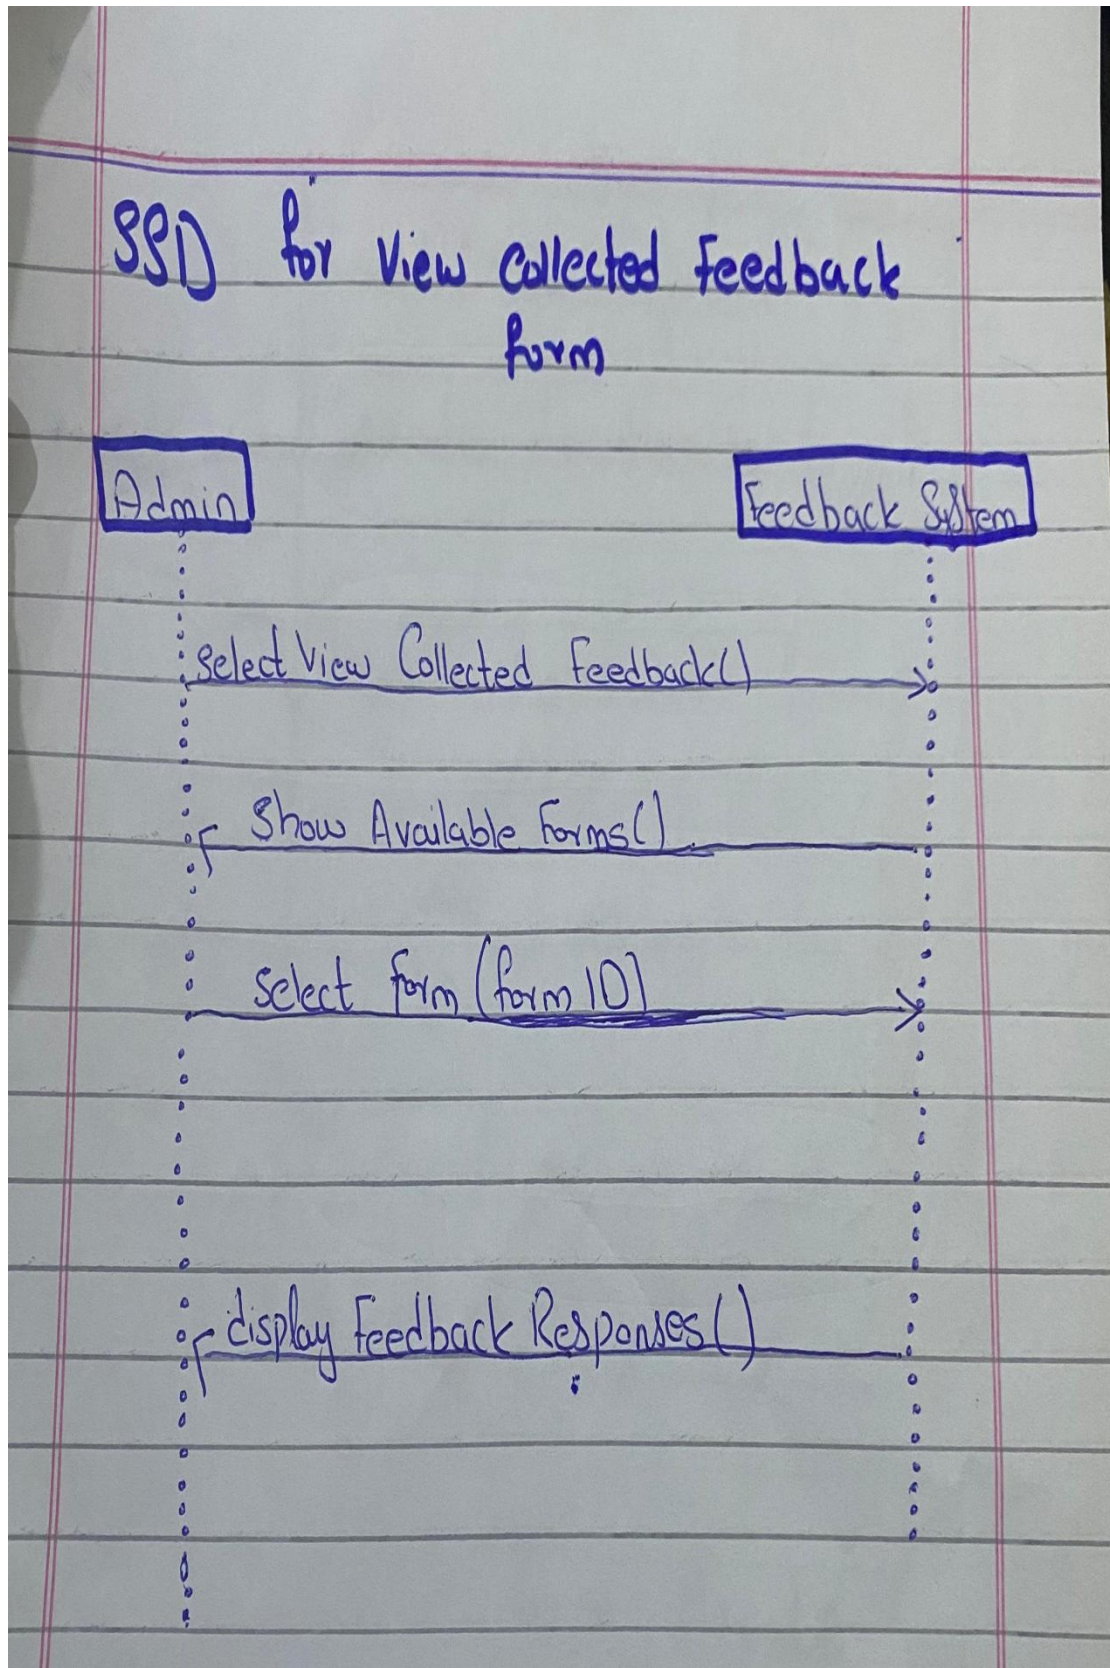 SSD for View Collected Feedback
form
Admin
Feedback System
Select View Collected Feedback()
Show Available Forms()
Select form (form ID)
display Feedback Responses()